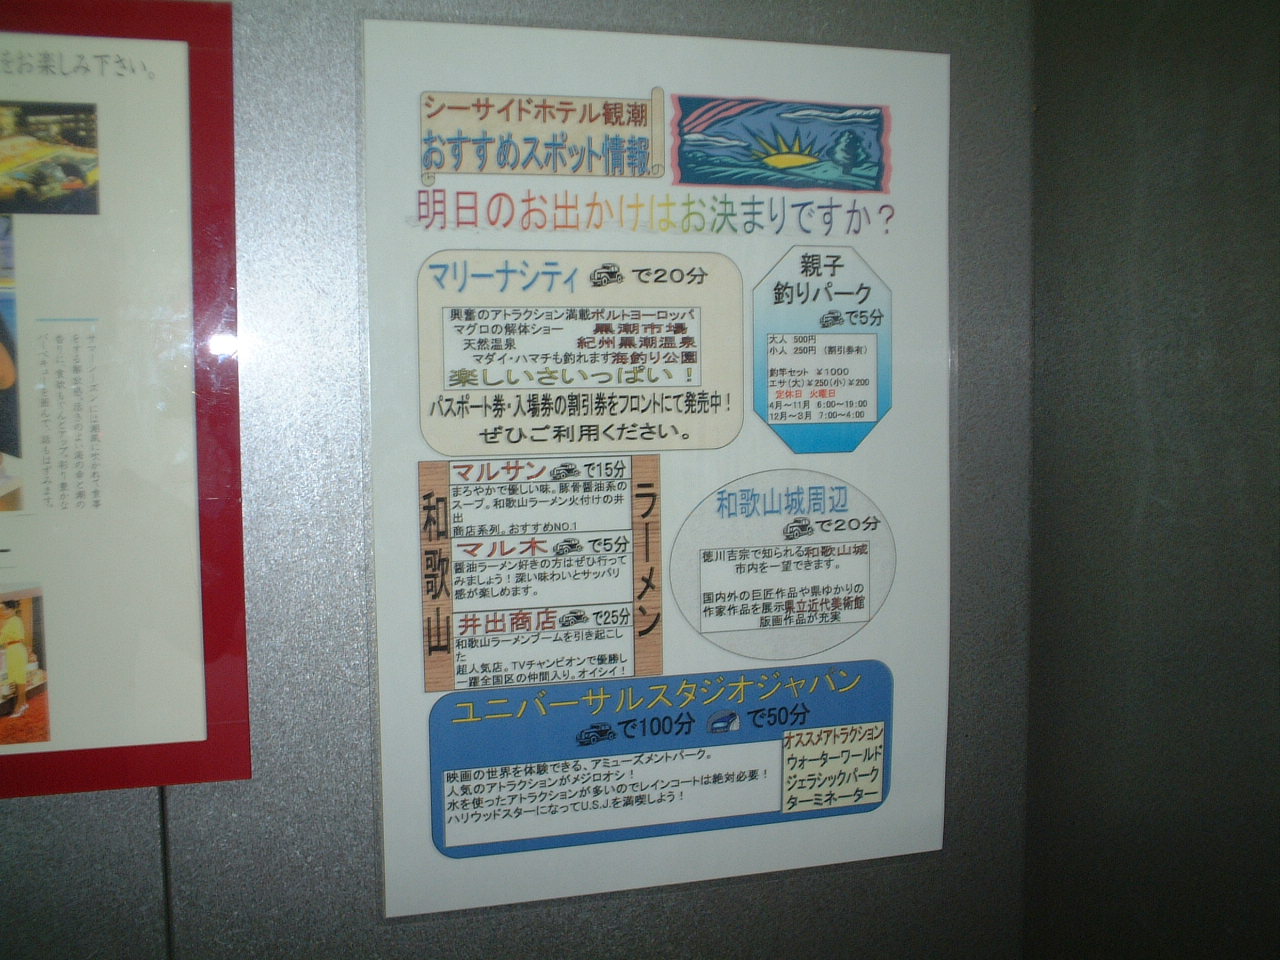 をお楽しみ下さい。
シーサイドホテル観潮
おすすめスポット情報
明日のお出かけはお決まりですか？
マリーナシティ で20分
興奮のアトラクション満載ポルトヨーロッパ
マグロの解体ショー 黒潮市場
天然温泉 紀州黒潮温泉
マダイ・ハマチも釣れます海釣り公園
楽しいさいっぱい！
パスポート券・入場券の割引券をフロントにて発売中！
ぜひご利用ください。
親子
釣りパーク
で5分
大人 500円
小人 250円 （割引券有）
釣竿セット ￥1000
エサ(大)￥250(小)￥200
定休日 火曜日
4月～11月 6:00～19:00
12月～3月 7:00～4:00
和歌山
ラーメン
マルサン で15分
まろやかで優しい味。豚骨醤油系の
スープ。和歌山ラーメン火付けの井
出
商店系列。おすすめNO.1
マル木 で5分
醤油ラーメン好きの方はぜひ行って
みましょう！深い味わいとサッパリ
感が楽しめます。
井出商店 で25分
和歌山ラーメンブームを引き起こし
た
超人気店。TVチャンピオンで優勝し
一躍全国区の仲間入り。オイシイ！
和歌山城周辺
で20分
徳川吉宗で知られる和歌山城
市内を一望できます。
国内外の巨匠作品や県ゆかりの
作家作品を展示県立近代美術館
版画作品が充実
ユニバーサルスタジオジャパン
で100分 で50分
映画の世界を体験できる、アミューズメントパーク。
人気のアトラクションがメジロオシ！
水を使ったアトラクションが多いのでレインコートは絶対必要！
ハリウッドスターになってU.S.Jを満喫しよう！
オススメアトラクション
ウォーターワールド
ジェラシックパーク
ターミネーター